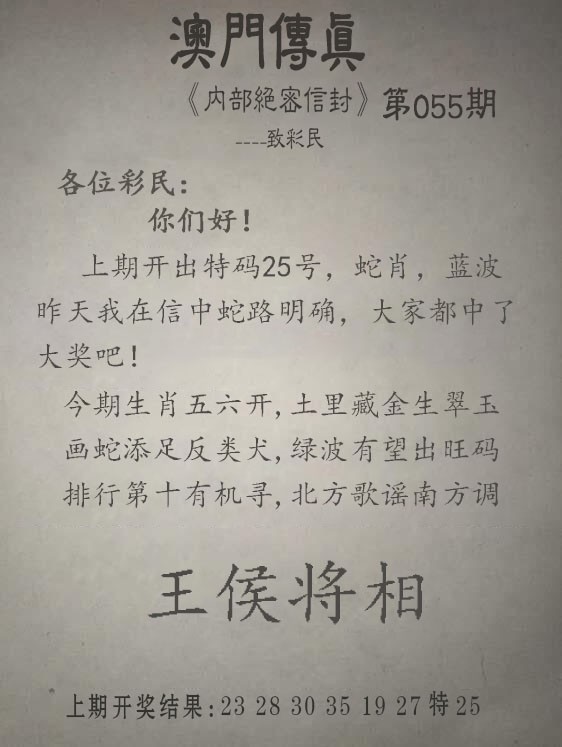 澳門傳眞
《内部絕密信封》第055期
----致彩民
各位彩民：
你们好！
上期开出特码25号，蛇肖，蓝波
昨天我在信中蛇路明确，大家都中了
大奖吧！
今期生肖五六开,土里藏金生翠玉
画蛇添足反类犬,绿波有望出旺码
排行第十有机寻,北方歌谣南方调
王侯将相
上期开奖结果:23 28 30 35 19 27 特25